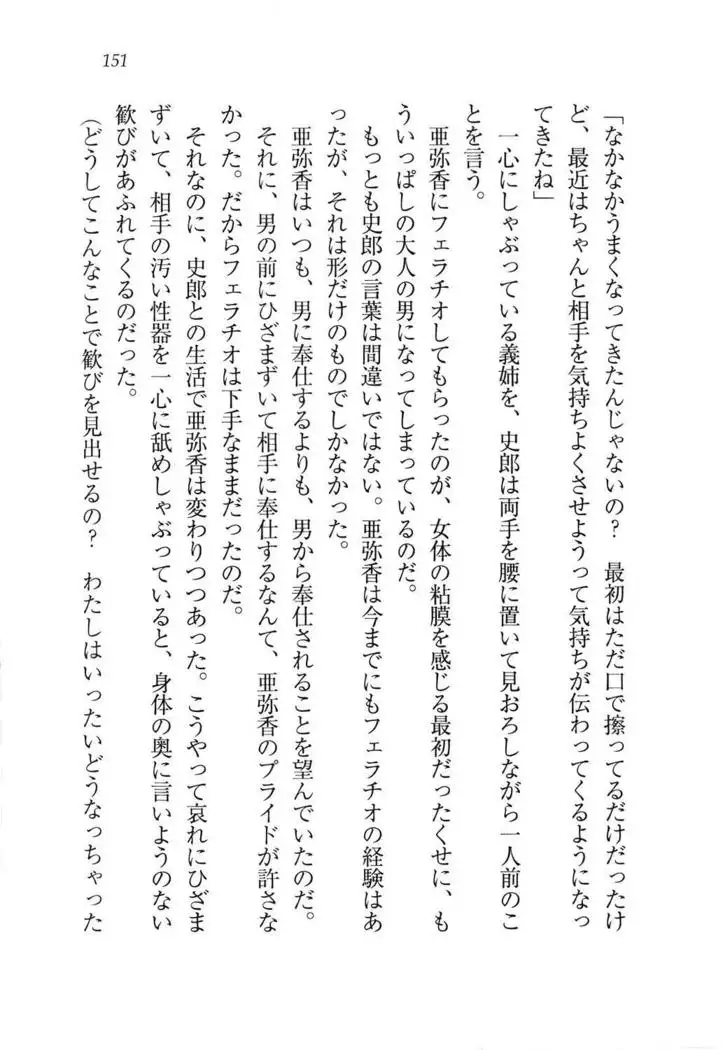 151
「なかなかうまくなってきたんじゃないの？　最初はただ口で擦ってるだけだったけ
ど、最近はちゃんと相手を気持ちよくさせようって気持ちが伝わってくるようになっ
てきたね」
　一心にしゃぶっている義姉を、史郎は両手を腰に置いて見おろしながら一人前のこ
とを言う。
　亜弥香にフェラチオしてもらったのが、女体の粘膜を感じる最初だったくせに、も
ういっぱしの大人の男になってしまっているのだ。
　もっとも史郎の言葉は間違いではない。亜弥香は今までにもフェラチオの経験はあ
ったが、それは形だけのものでしかなかった。
　亜弥香はいつも、男に奉仕するよりも、男から奉仕されることを望んでいたのだ。
　それに、男の前にひざまずいて相手に奉仕するなんて、亜弥香のプライドが許さな
かった。だからフェラチオは下手なままだったのだ。
　それなのに、史郎との生活で亜弥香は変わりつつあった。こうやって哀れにひざま
ずいて、相手の汚い性器を一心に舐めしゃぶっていると、身体の奥に言いようのない
歓びがあふれてくるのだった。
（どうしてこんなことで歓びを見出せるの？　わたしはいったいどうなっちゃった